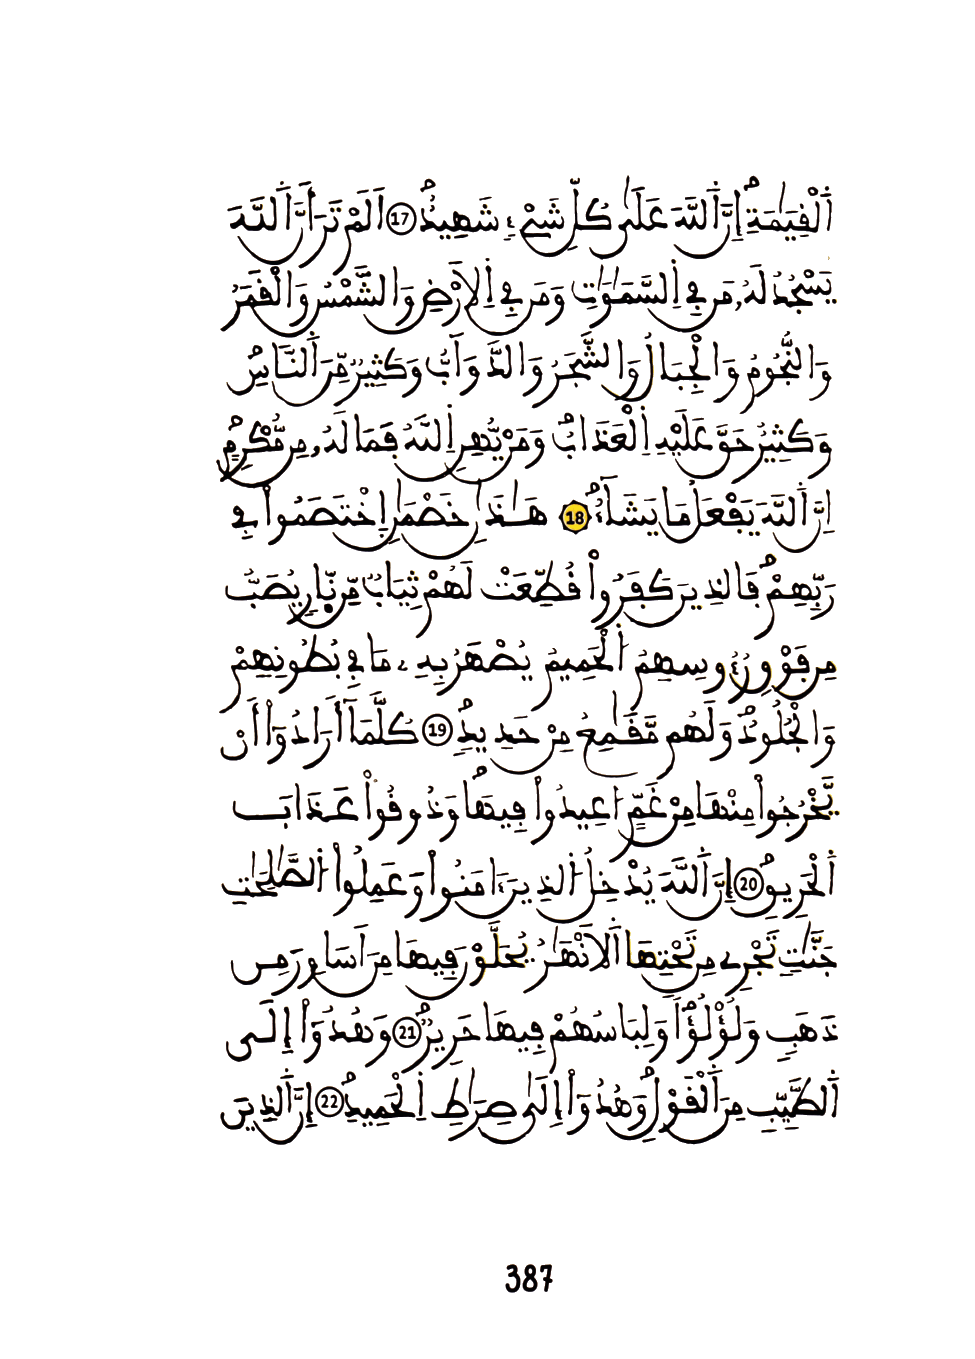 اَ۬لْقِيَٰمَةِۖ إِنَّ اَ۬للَّهَ عَلَىٰ كُلِّ شَےْءٖ شَهِيدٌۖ (17) اَلَمْ تَرَ أَنَّ اَ۬للَّهَ
يَسْجُدُ لَهُۥ مَن فِے اِ۬لسَّمَٰوَٰتِ وَمَن فِے اِ۬لَارْضِ وَالشَّمْسُ وَالْقَمَرُ
وَالنُّجُومُ وَالْجِبَالُ وَالشَّجَرُ وَالدَّوَآبُّ وَكَثِيرٞ مِّنَ اَ۬لنَّاسِۖ
وَكَثِيرٌ حَقَّ عَلَيْهِ اِ۬لْعَذَابُۖ وَمَنْ يُّهِنِ اِ۬للَّهُ فَمَا لَهُۥ مِن مُّكْرِمٍۖ
اِنَّ اَ۬للَّهَ يَفْعَلُ مَا يَشَآءُۖ (18) هَٰذَٰنِ خَصْمَٰنِ اِ۪خْتَصَمُواْ فِے
رَبِّهِمْۖ فَالذِينَ كَفَرُواْ قُطِّعَتْ لَهُمْ ثِيَابٞ مِّن نّ۪ارٖ يُصَبُّ
مِن فَوْقِ رُءُوسِهِمُ اُ۬لْحَمِيمُ يُصْهَرُ بِهِۦ مَا فِے بُطُونِهِمْ
وَالْجُلُودُۖ وَلَهُم مَّقَٰمِعُ مِنْ حَدِيدٖۖ (19) كُلَّمَآ أَرَادُوٓاْ أَنْ
يَّخْرُجُواْ مِنْهَا مِنْ غَمٍّ ا۟عِيدُواْ فِيهَا وَذُوقُواْ عَذَابَ
اَ۬لْحَرِيقِۖ (20) إِنَّ اَ۬للَّهَ يُدْخِلُ اُ۬لذِينَ ءَامَنُواْ وَعَمِلُواْ اُ۬لصَّٰلِحَٰتِ
جَنَّٰتٖ تَجْرِے مِن تَحْتِهَا اَ۬لَانْهَٰرُ يُحَلَّوْنَ فِيهَا مِنَ اَسَاوِرَ مِن
ذَهَبٖ وَلُؤْلُؤاٗۖ وَلِبَاسُهُمْ فِيهَا حَرِيرٞۖ (21) وَهُدُوٓاْ إِلَى
اَ۬لطَّيِّبِ مِنَ اَ۬لْقَوْلِۖ وَهُدُوٓاْ إِلَىٰ صِرَٰطِ اِ۬لْحَمِيدِۖ (22) إِنَّ اَ۬لذِينَ
387